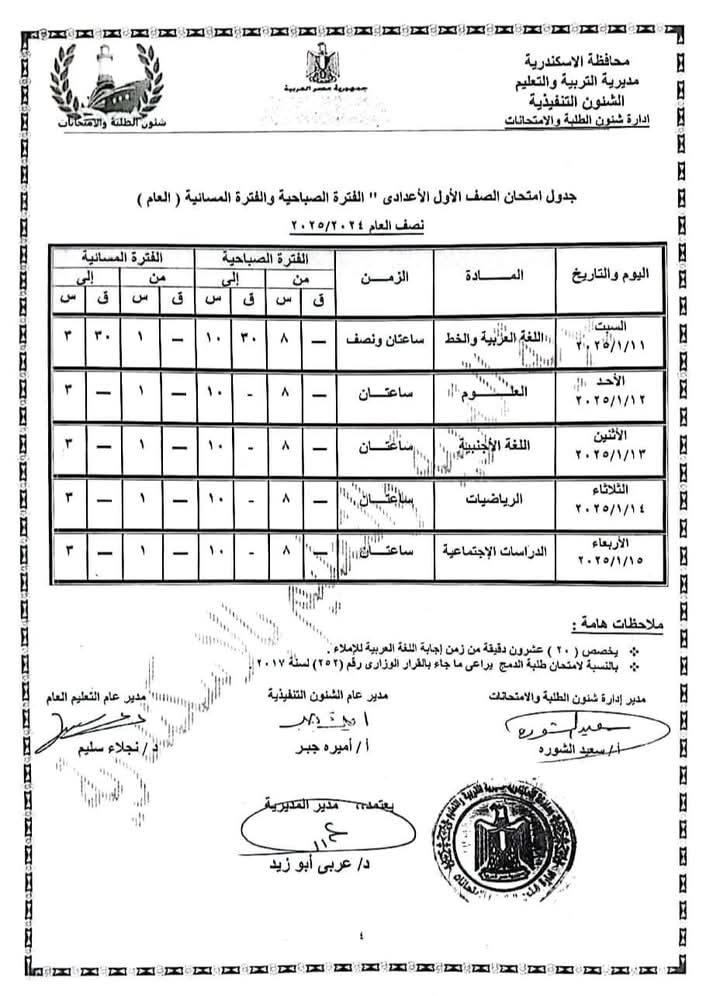 محافظة الاسكندرية
مديرية التربية والتعليم
الشئون التنفيذية
ادارة شئون الطلبة والامتحانات
جمهورية مصر العربية
شئون الطلبة والامتحانات
جدول امتحان الصف الأول الأعدادى " الفترة الصباحية والفترة المسائية ( العام )
نصف العام ٢٠٢٥/٢٠٢٤
اليوم والتاريخ المــــادة الزمـــن الفترة الصباحية الفترة المسائية
من إلى من إلى
ق س ق س ق س ق س
السبت
٢٠٢٥/١/١١ اللغة العربية والخط ساعتان ونصف — ٨ ٣٠ ١٠ — ١ ٣٠ ٣
الأحد
٢٠٢٥/١/١٢ العلـــــوم ساعتـــان — ٨ - ١٠ — ١ — ٣
الأثنين
٢٠٢٥/١/١٣ اللغة الأجنبية ساعتـــان — ٨ - ١٠ — ١ — ٣
الثلاثاء
٢٠٢٥/١/١٤ الرياضيات ساعتـــان — ٨ - ١٠ — ١ — ٣
الأربعاء
٢٠٢٥/١/١٥ الدراسات الإجتماعية ساعتـــان — ٨ - ١٠ — ١ — ٣
ملاحظات هامة :
يخصص ( ٢٠ ) عشرون دقيقة من زمن إجابة اللغة العربية للإملاء .
بالنسبة لامتحان طلبة الدمج يراعى ما جاء بالقرار الوزارى رقم (٢٥٢) لسنة ٢٠١٧ .
مدير إدارة شئون الطلبة والامتحانات مدير عام الشئون التنفيذية مدير عام التعليم العام
أ/ سعيد الشوره أ/ أميره جبر د/ نجلاء سليم
يعتمد،، مدير المديرية
د/ عربى أبو زيد
٤